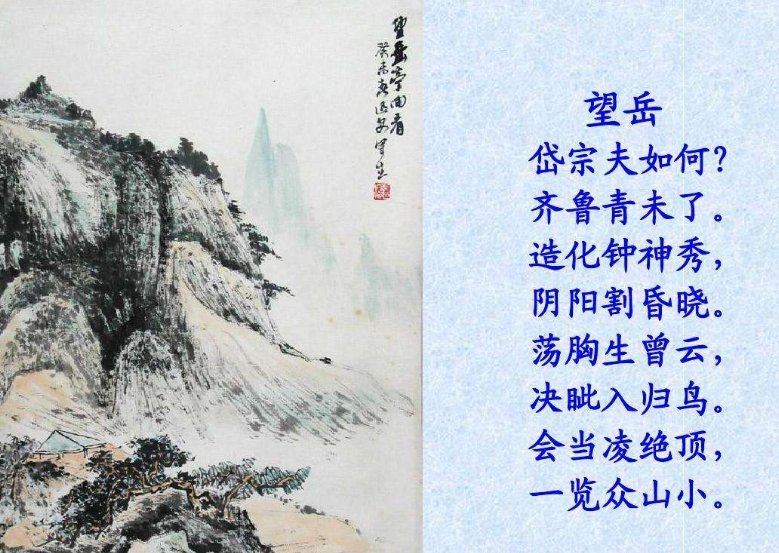 望岳亭回看
望岳
岱宗夫如何？
齐鲁青未了。
造化钟神秀，
阴阳割昏晓。
荡胸生曾云，
决眦入归鸟。
会当凌绝顶，
一览众山小。